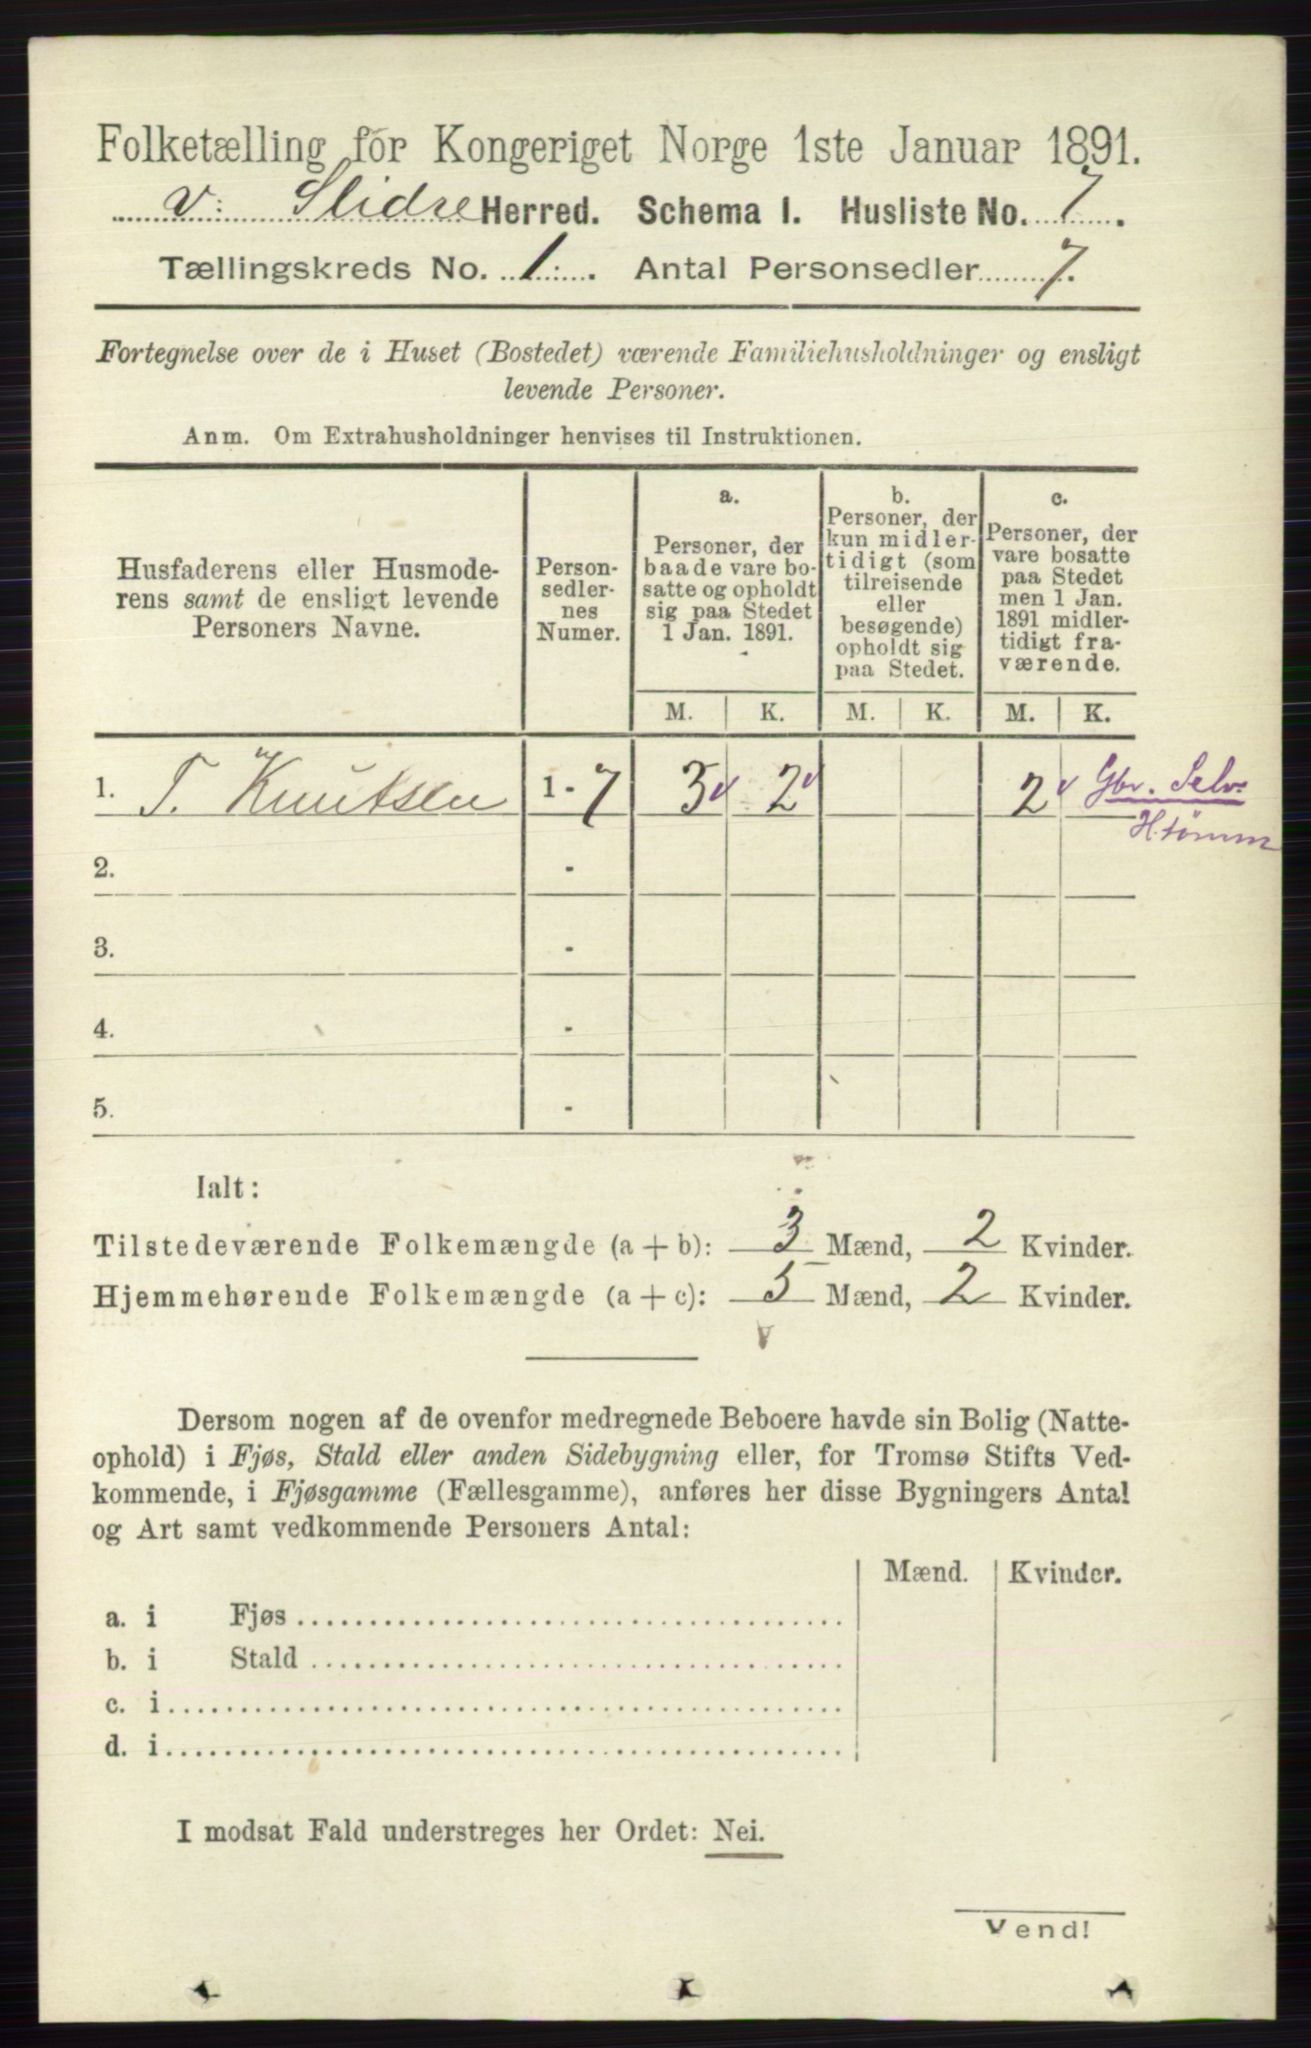 Folketælling for Kongeriget Norge 1ste Januar 1891.
V: Slidre Herred. Schema I. Husliste No. 7.
Tællingskreds No. 1. Antal Personsedler 7.
Fortegnelse over de i Huset (Bostedet) værende Familiehusholdninger og ensligt
levende Personer.
Anm. Om Extrahusholdninger henvises til Instruktionen.
Husfaderens eller Husmode-
rens samt de ensligt levende
Personers Navne.
Person-
sedler-
nes
Numer.
a.
Personer, der
baade vare bo-
satte og opholdt
sig paa Stedet
1 Jan. 1891.
b.
Personer, der
kun midler-
tidigt (som
tilreisende
eller
besøgende)
opholdt sig
paa Stedet.
c.
Personer, der
vare bosatte
paa Stedet
men 1 Jan.
1891 midler-
tidigt fra-
værende.
M. K. M. K. M. K.
1. T. Knutsen 1 - 7 3 2 2 Gbr. Selv.
H.tømm
2. -
3. -
4. -
5. -
Ialt:
Tilstedeværende Folkemængde (a + b): 3 Mænd, 2 Kvinder.
Hjemmehørende Folkemængde (a + c): 5 Mænd, 2 Kvinder.
Dersom nogen af de ovenfor medregnede Beboere havde sin Bolig (Natte-
ophold) i Fjøs, Stald eller anden Sidebygning eller, for Tromsø Stifts Ved-
kommende, i Fjøsgamme (Fællesgamme), anføres her disse Bygningers Antal
og Art samt vedkommende Personers Antal:
Mænd. Kvinder.
a. i Fjøs
b. i Stald
c. i
d. i
I modsat Fald understreges her Ordet: Nei.
Vend!